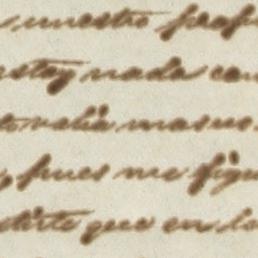 nuestro prop
estoy nada con
valia mas
pues me figu
dirte que en lo